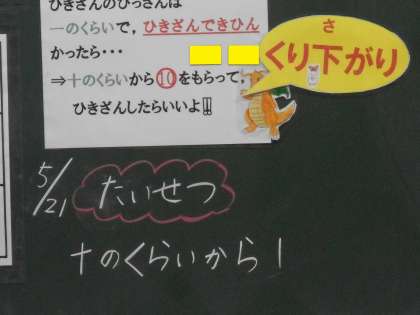 ひきざんのひっさんは
一のくらいで，ひきざんできひん
かったら･･･
⇒十のくらいから⑩をもらって，
ひきざんしたらいいよ!!
さ
くり下がり
5/21
たいせつ
十のくらいから1